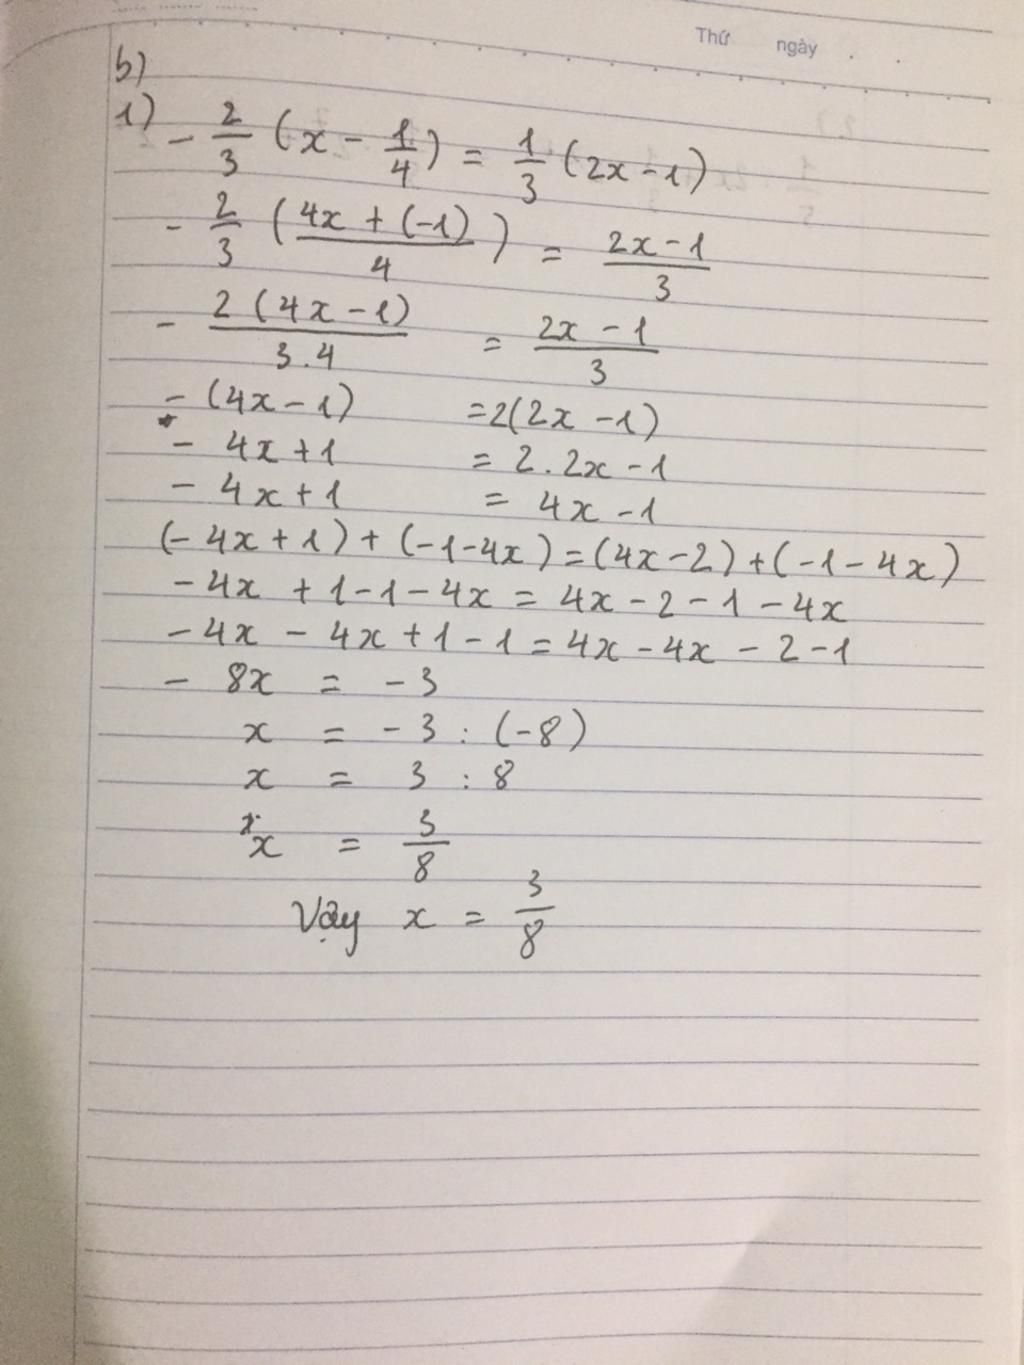 Thứ ngày
b)
1) - 2/3 (x - 1/4) = 1/3 (2x - 1)
- 2/3 ( (4x + (-1))/4 ) = (2x - 1)/3
- 2(4x - 1)/(3.4) = (2x - 1)/3
- (4x - 1) = 2(2x - 1)
- 4x + 1 = 2.2x - 1
- 4x + 1 = 4x - 1
(- 4x + 1) + (-1 - 4x) = (4x - 2) + (-1 - 4x)
- 4x + 1 - 1 - 4x = 4x - 2 - 1 - 4x
- 4x - 4x + 1 - 1 = 4x - 4x - 2 - 1
- 8x = - 3
x = - 3 : (-8)
x = 3 : 8
x = 3/8
Vậy x = 3/8